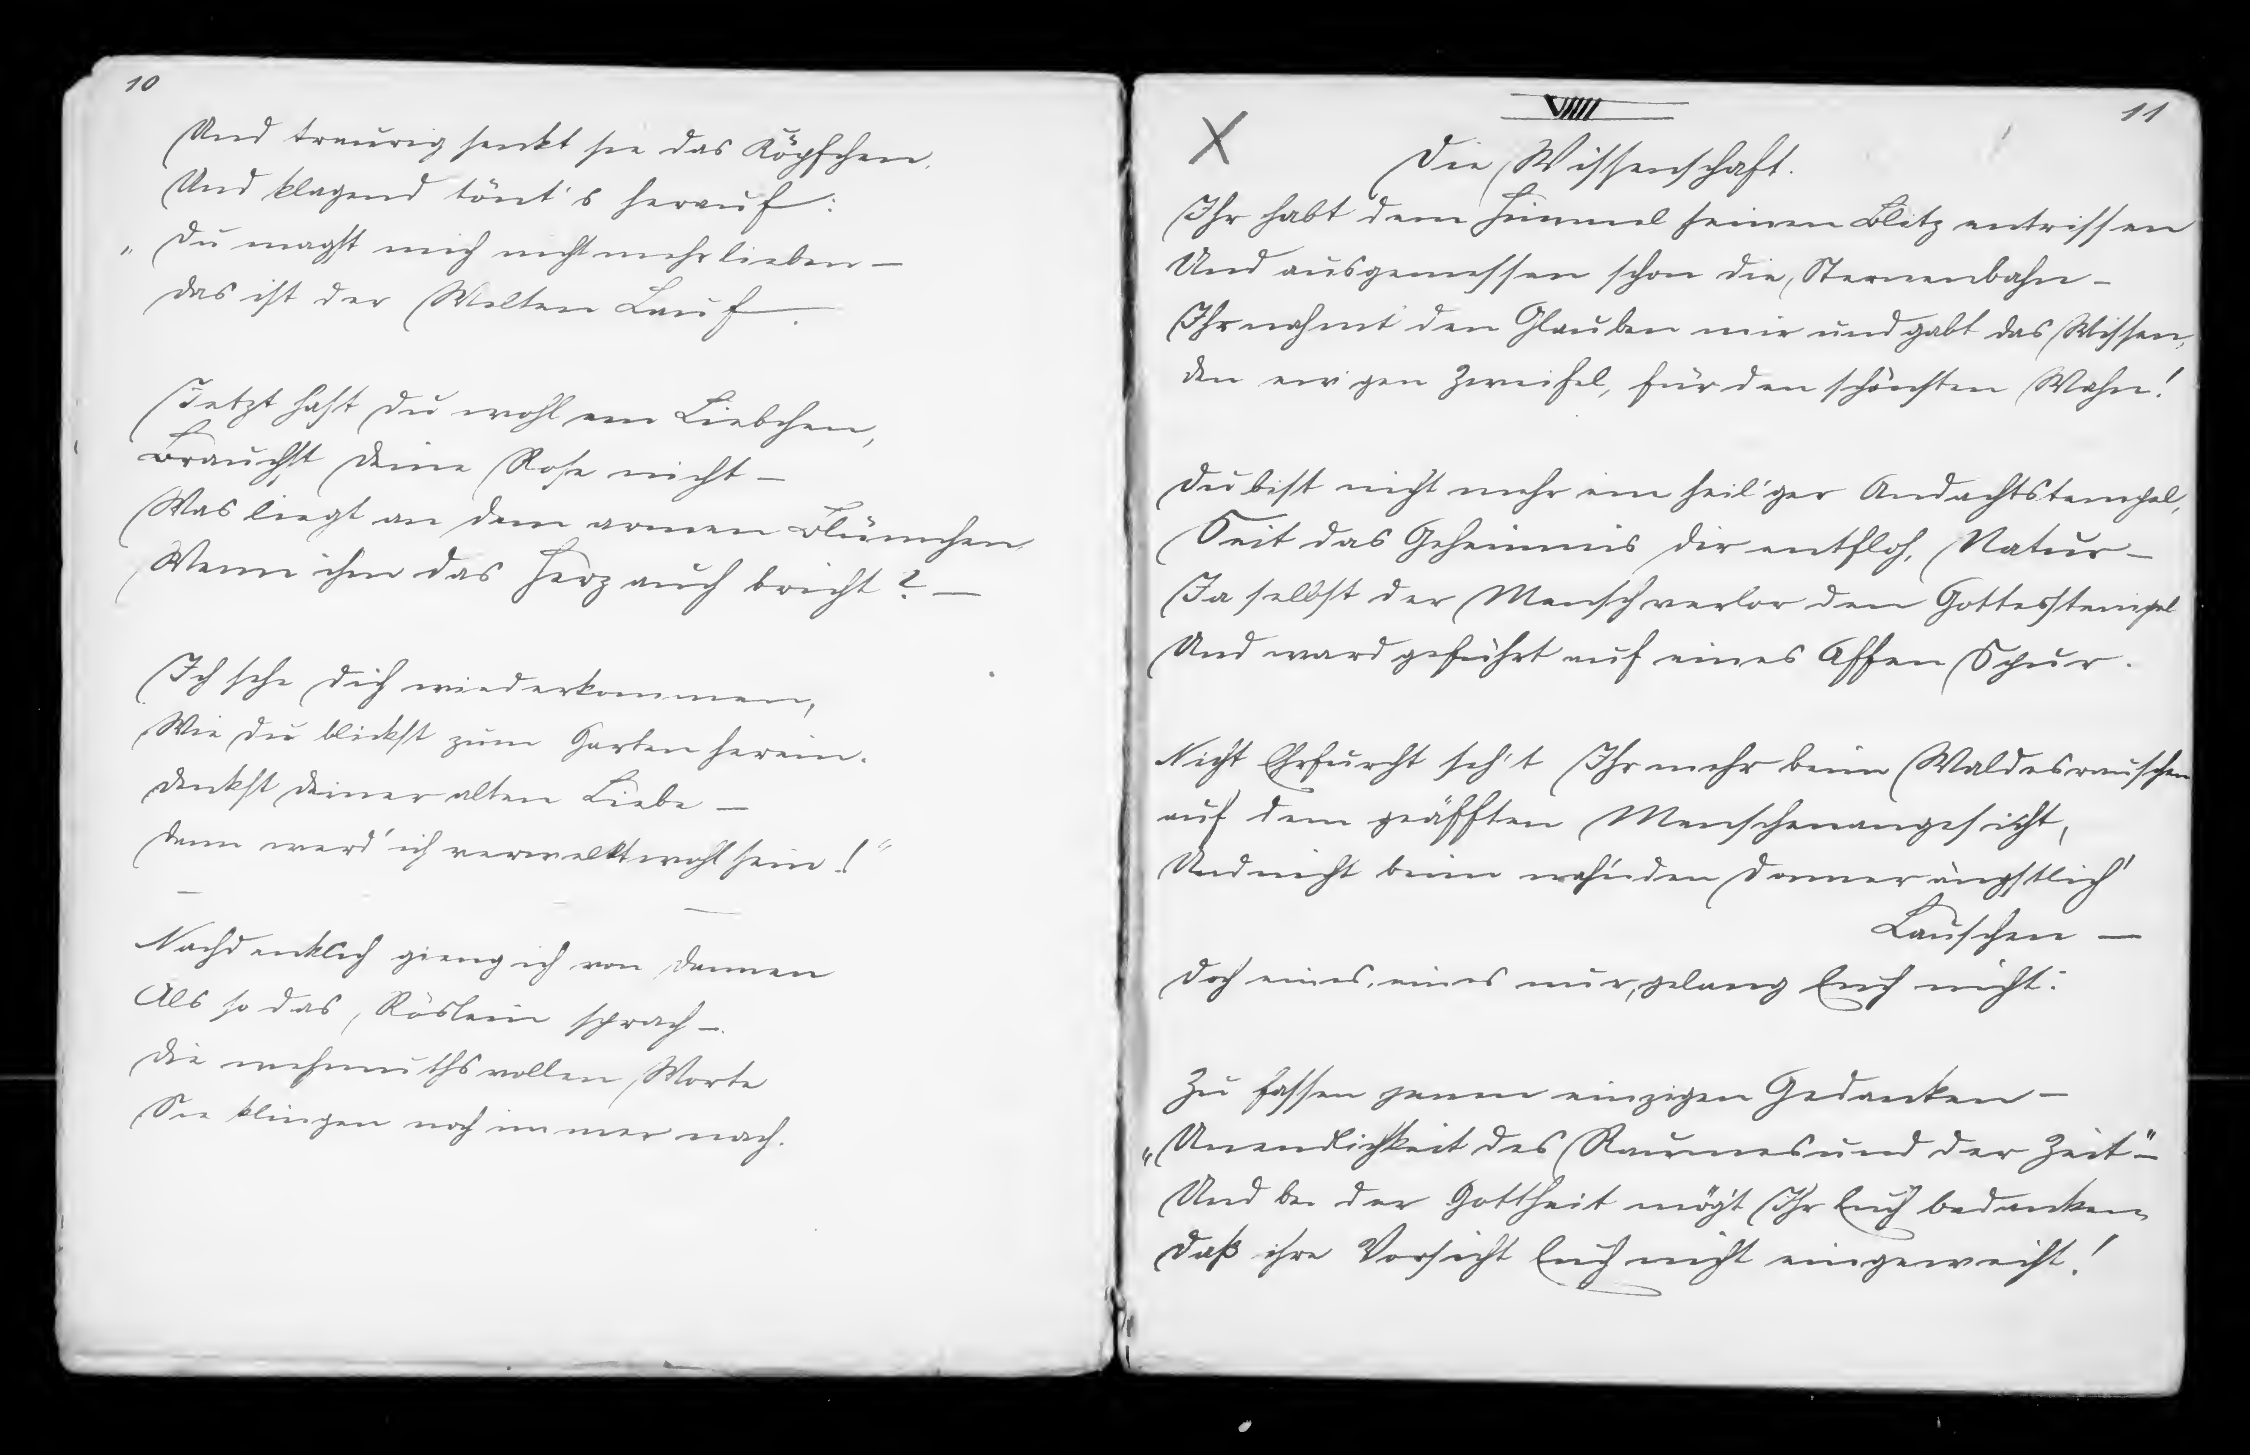 10
Und traurig senkt sie das Köpfchen.
Und klagend tönt's herauf:
„Du magst mich nicht mehr lieben –
Das ist der Welten Lauf.
Jetzt hast Du wohl ein Liebchen,
Brauchst Deine Rose nicht –
Was liegt an dem armen Blümchen
Wenn ihm das Herz auch bricht? –
Ich sehe Dich wiederkommen,
Wie Du blickst zum Garten herein.
Denkst Deiner alten Liebe –
Dann werd' ich verwelkt wohl sein!“
Nachdenklich gieng ich von dannen
Als so das Röslein sprach –
Die wehmuthsvollen Worte
Sie klingen noch immer nach.
11
VIIII
X
Die Wissenschaft.
Ihr habt dem Himmel seinen Blitz entrissen
Und ausgemessen schon die Sternenbahn –
Ihr nahmt den Glauben mir und gabt das Wissen,
Den ew'gen Zweifel, für den schönsten Wahn!
Du bist nicht mehr ein heil'ger Andachtstempel,
Seit das Geheimnis Dir entfloh, Natur –
Ja selbst der Mensch verlor den Gottesstempel
Und ward geführt auf eines Affen Spur.
Nicht Ehrfurcht seh't Ihr mehr beim Waldesrauschen
auf dem geäfften Menschenangesicht,
Und nicht beim nah'nden Donner ängstlich'
Lauschen –
Doch eines, eines nur, gelang Euch nicht:
Zu fassen jenen einzigen Gedanken –
„Unendlichkeit des Raumes und der Zeit“ –
Und bei der Gottheit mög't Ihr Euch bedanken
Daß ihre Vorsicht Euch nicht eingeweiht!